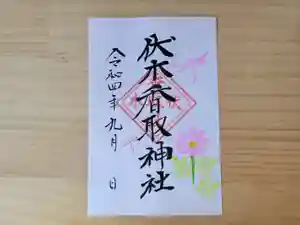 伏木香取神社
令和四年九月　日